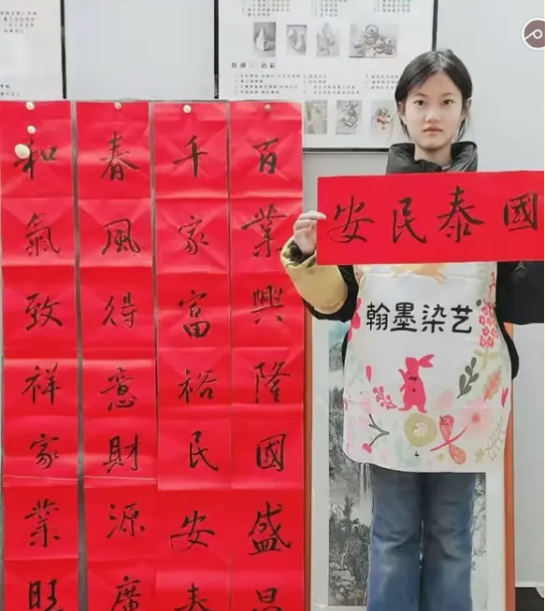 百業興隆國盛昌
千家富裕民安泰
春風得意財源廣
和氣致祥家業旺
國泰民安
翰墨染艺